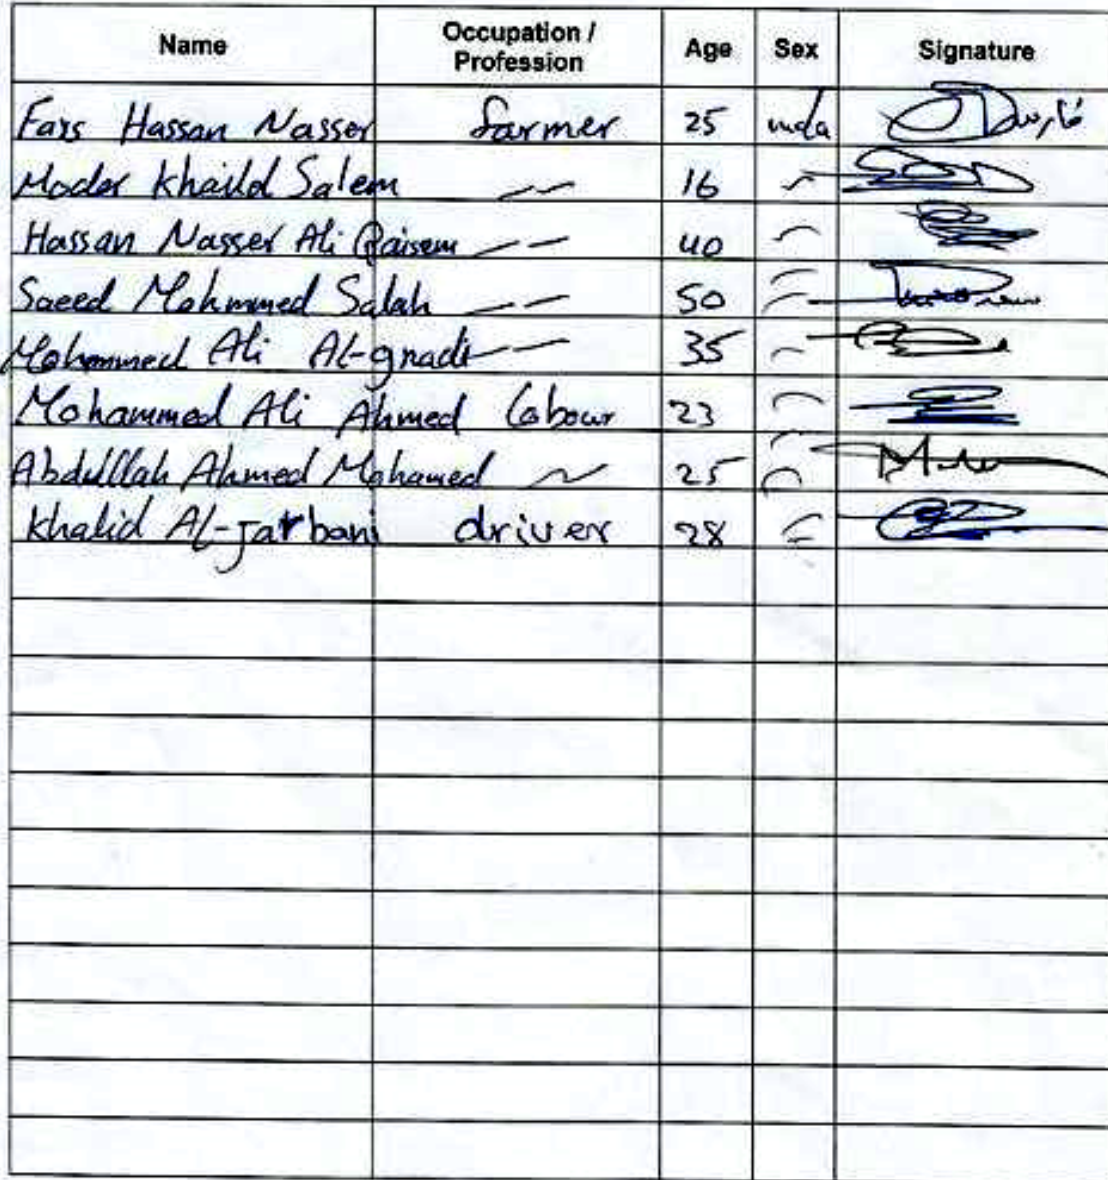 Name Occupation / Profession Age Sex Signature
Fars Hassan Nasser farmer 25
Moder Khaild Salem 〃 16 〃
Hassan Nasser Ali 〃 40 〃
Saeed Mohmmed Salah 〃 50 〃
Mohammed Ali Al-gnadi 〃 35 〃
Mohammed Ali Ahmed labour 23 〃
Abdulllah Ahmed Mohamed 〃 25 〃
Khalid Al-Jarbani driver 28 〃